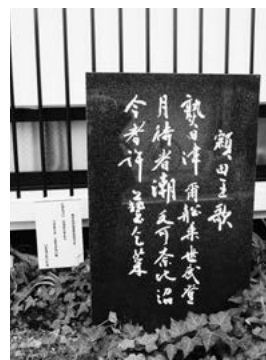 額田王歌
熟田津尓船乗世武登
月待者潮毛可奈比沼
今者許藝乞菜